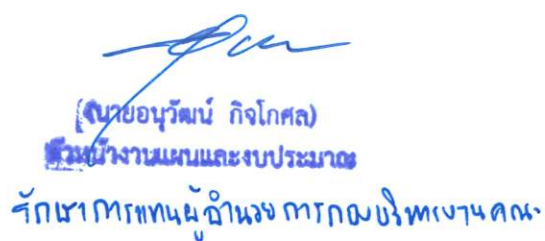 (นายอนุวัฒน์ กิจโกศล)
หัวหน้างานแผนและงบประมาณ
รักษาการแทนผู้อำนวยการกองบริหารงานคณะ